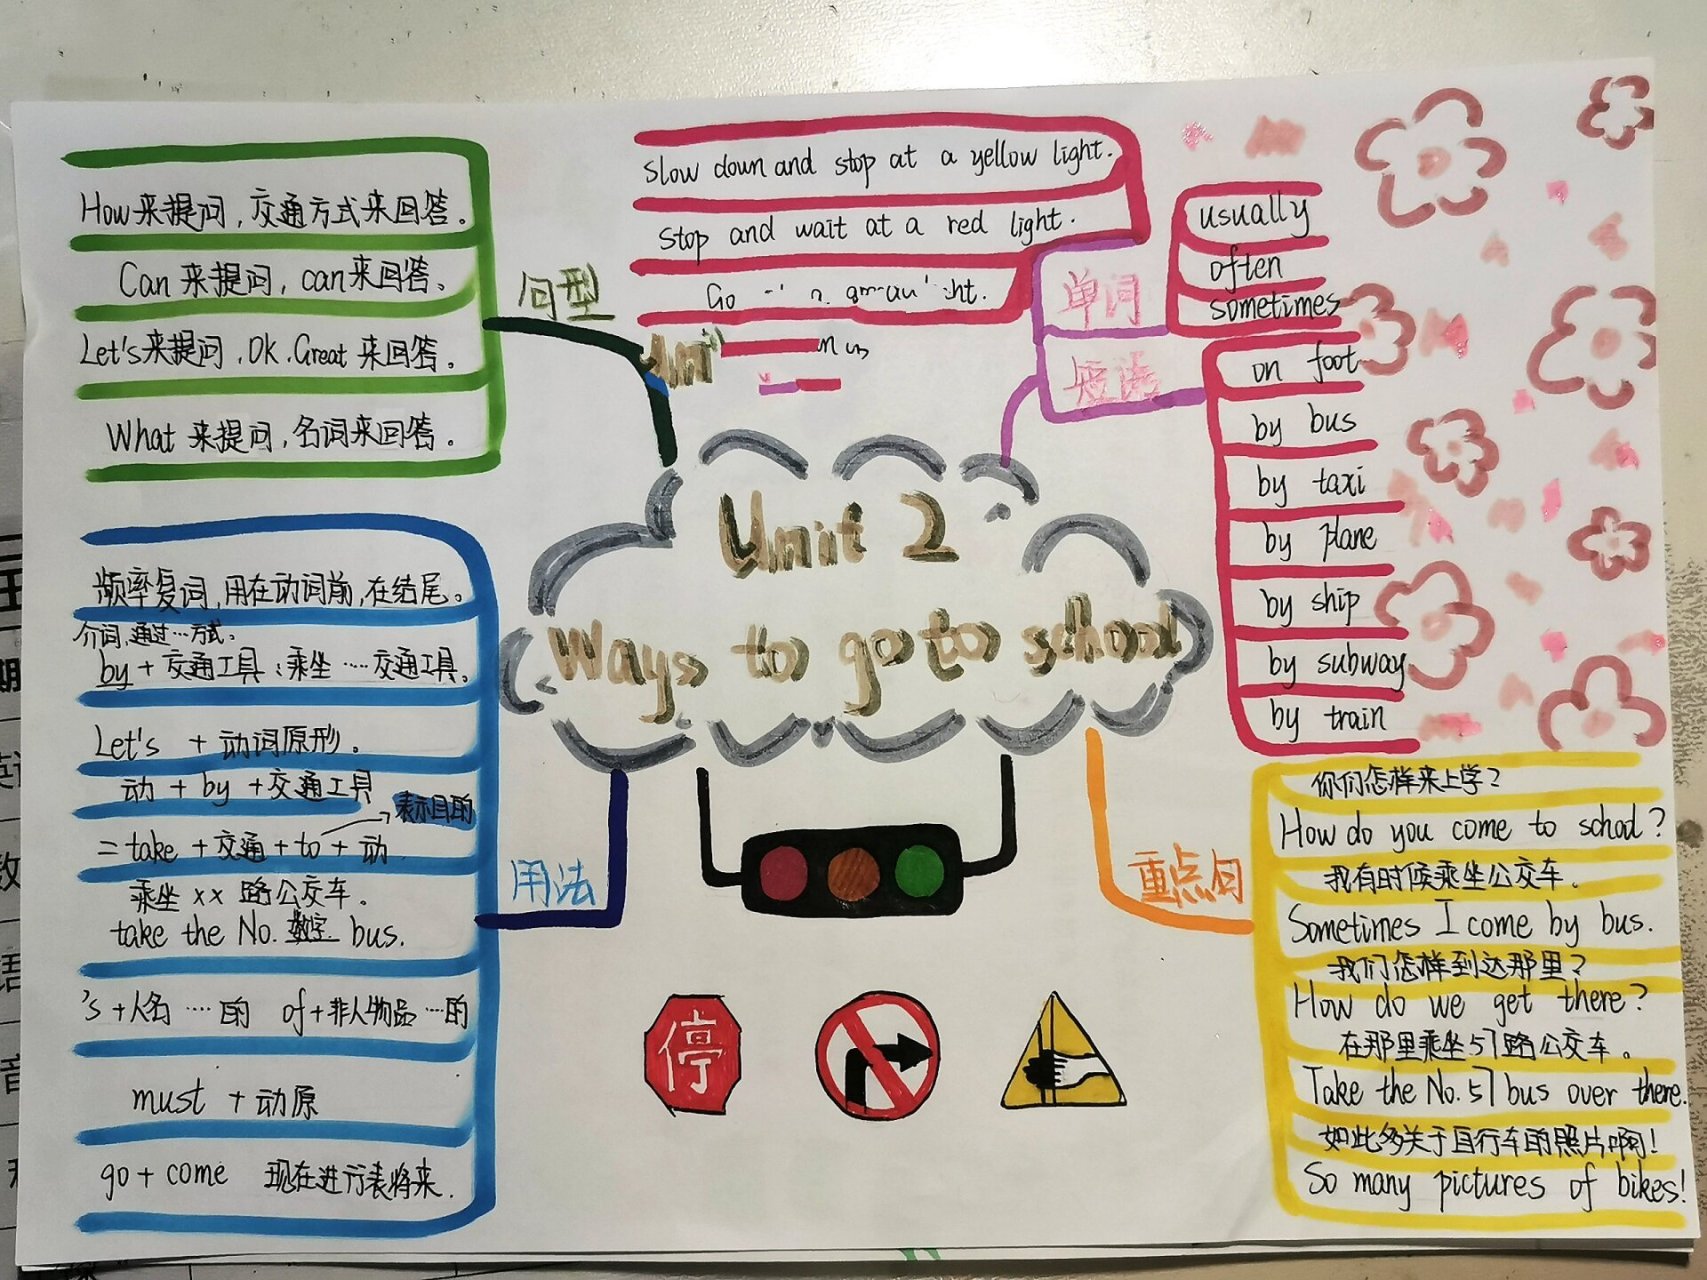 How来提问，交通方式来回答。
Can 来提问，can来回答。
Let's来提问，OK，Great 来回答。
What 来提问，名词来回答。
句型
slow down and stop at a yellow light.
stop and wait at a red light.
Go
单词
短语
usually
often
sometimes
on foot
by bus
by taxi
by plane
by ship
by subway
by train
Unit 2
Ways to go to school
频率复词，用在动词前，在结尾。
介词，通过…方式。
by + 交通工具：乘坐……交通工具。
Let's + 动词原形。
动 + by + 交通工具
表示目的
= take + 交通 + to + 动
乘坐 ×× 路公交车。
take the No. 数字 bus.
's + 人名 ……的 of + 非人物品 …的
must + 动原
go + come 现在进行表将来.
用法
停
重点句
你们怎样来上学？
How do you come to school?
我有时候乘坐公交车。
Sometimes I come by bus.
我们怎样到达那里？
How do we get there?
在那里乘坐57路公交车。
Take the No. 57 bus over there.
如此多关于自行车的照片啊！
So many pictures of bikes!